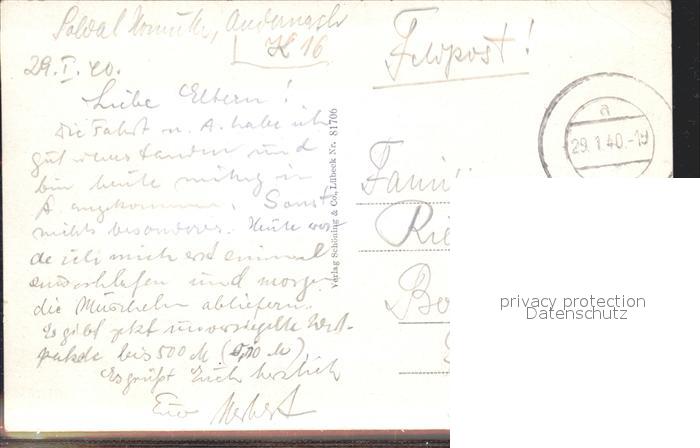 Soldat Andernach
K 16
29. I. 40.
Feldpost!
Liebe Eltern!
Die Fahrt n. A. habe ich
gut überstanden und
bin heute mittag in
A angekommen. Sonst
nichts besonderes. Heute wer
de ich mich erst einmal
ausschlafen und morgen
die Muscheln abliefern.
Es gibt jetzt unversiegelte Wert-
pakete bis 500 M (0,10 M).
Es grüßt Euch herzlich
Euer Herbert
Verlag Schöning & Co., Lübeck Nr. 81706
a
29.1.40.-19
Fami
privacy protection
Datenschutz